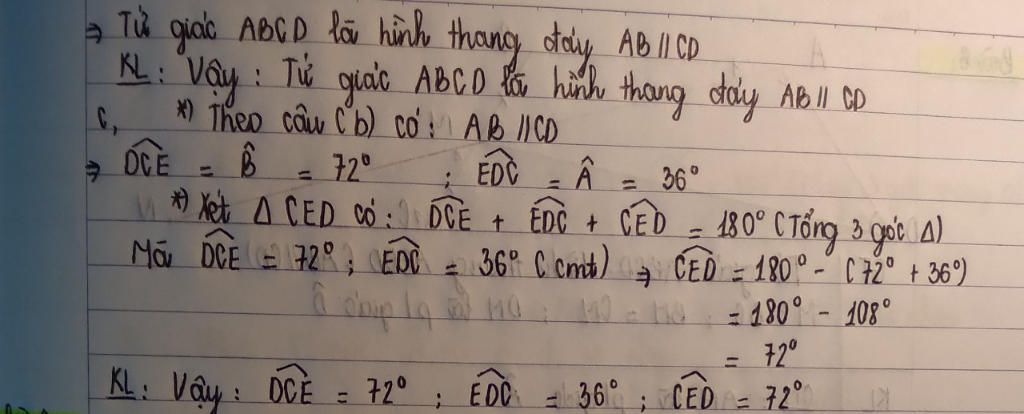 ⇒ Tứ giác ABCD là hình thang đáy AB // CD
KL: Vậy: Tứ giác ABCD là hình thang đáy AB // CD
c, *) Theo câu (b) có: AB // CD
⇒ \widehat{DCE} = \hat{B} = 72° ; \widehat{EDC} = \hat{A} = 36°
*) Xét Δ CED có: \widehat{DCE} + \widehat{EDC} + \widehat{CED} = 180° (Tổng 3 góc Δ)
Mà \widehat{DCE} = 72° ; \widehat{EDC} = 36° (cmt) ⇒ \widehat{CED} = 180° - (72° + 36°)
= 180° - 108°
= 72°
KL: Vậy: \widehat{DCE} = 72° ; \widehat{EDC} = 36° ; \widehat{CED} = 72°